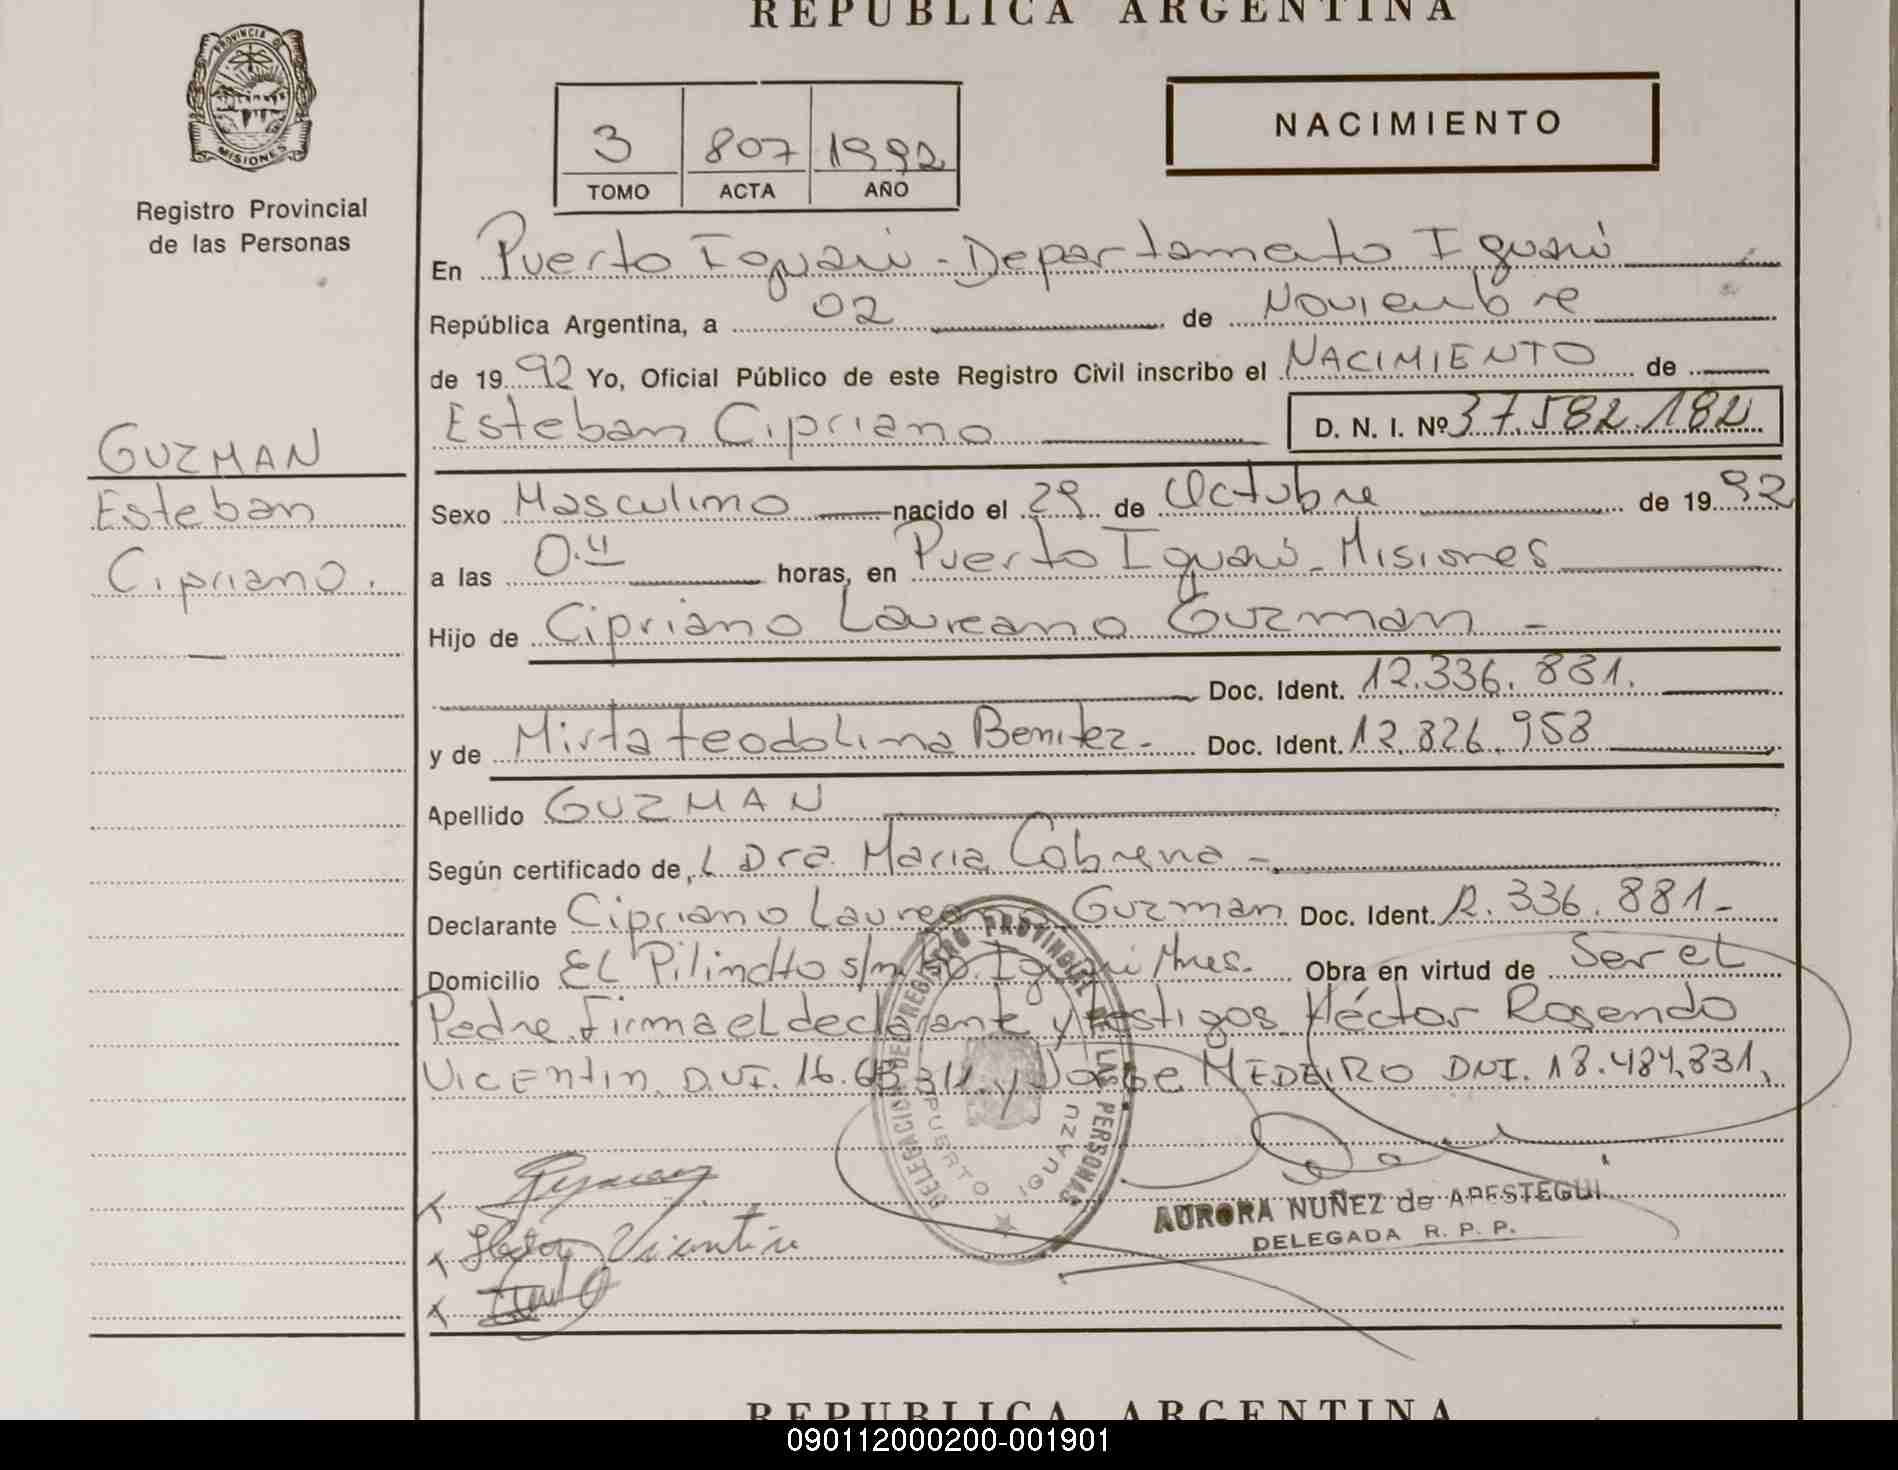 REPUBLICA ARGENTINA
PROVINCIA DE
MISIONES
Registro Provincial
de las Personas
3 807 1992
TOMO ACTA AÑO
NACIMIENTO
En Puerto Iguazú - Departamento Iguazú
República Argentina, a 02 de Noviembre
de 1992 Yo, Oficial Público de este Registro Civil inscribo el NACIMIENTO de
Esteban Cipriano D. N. I. Nº 37.582.182
GUZMAN
Esteban
Cipriano.
Sexo Masculino nacido el 29 de Octubre de 1992
a las 0.4 horas, en Puerto Iguazú - Misiones
Hijo de Cipriano Laureano Guzman -
Doc. Ident. 12.336.881.
y de Mirta teodolina Benitez - Doc. Ident. 12.826.958
Apellido GUZMAN
Según certificado de, Dra. Maria Cabrera -
Declarante Cipriano Laureano Guzman Doc. Ident. 12.336.881-
Domicilio EL Pilincho s/n Pto. Iguazú Mnes. Obra en virtud de Ser el
Padre. Firma el declarante y testigos Héctor Rosendo
Vicentin, D.N.I. 16. y Jorge MEDEIRO DNI. 18.484.831,
DELEGACION DEL REGISTRO PROVINCIAL DE LAS PERSONAS
PUERTO IGUAZU
Hector Vicentin
AURORA NUÑEZ de APESTEGUI
DELEGADA R. P. P.
REPUBLICA ARGENTINA
090112000200-001901